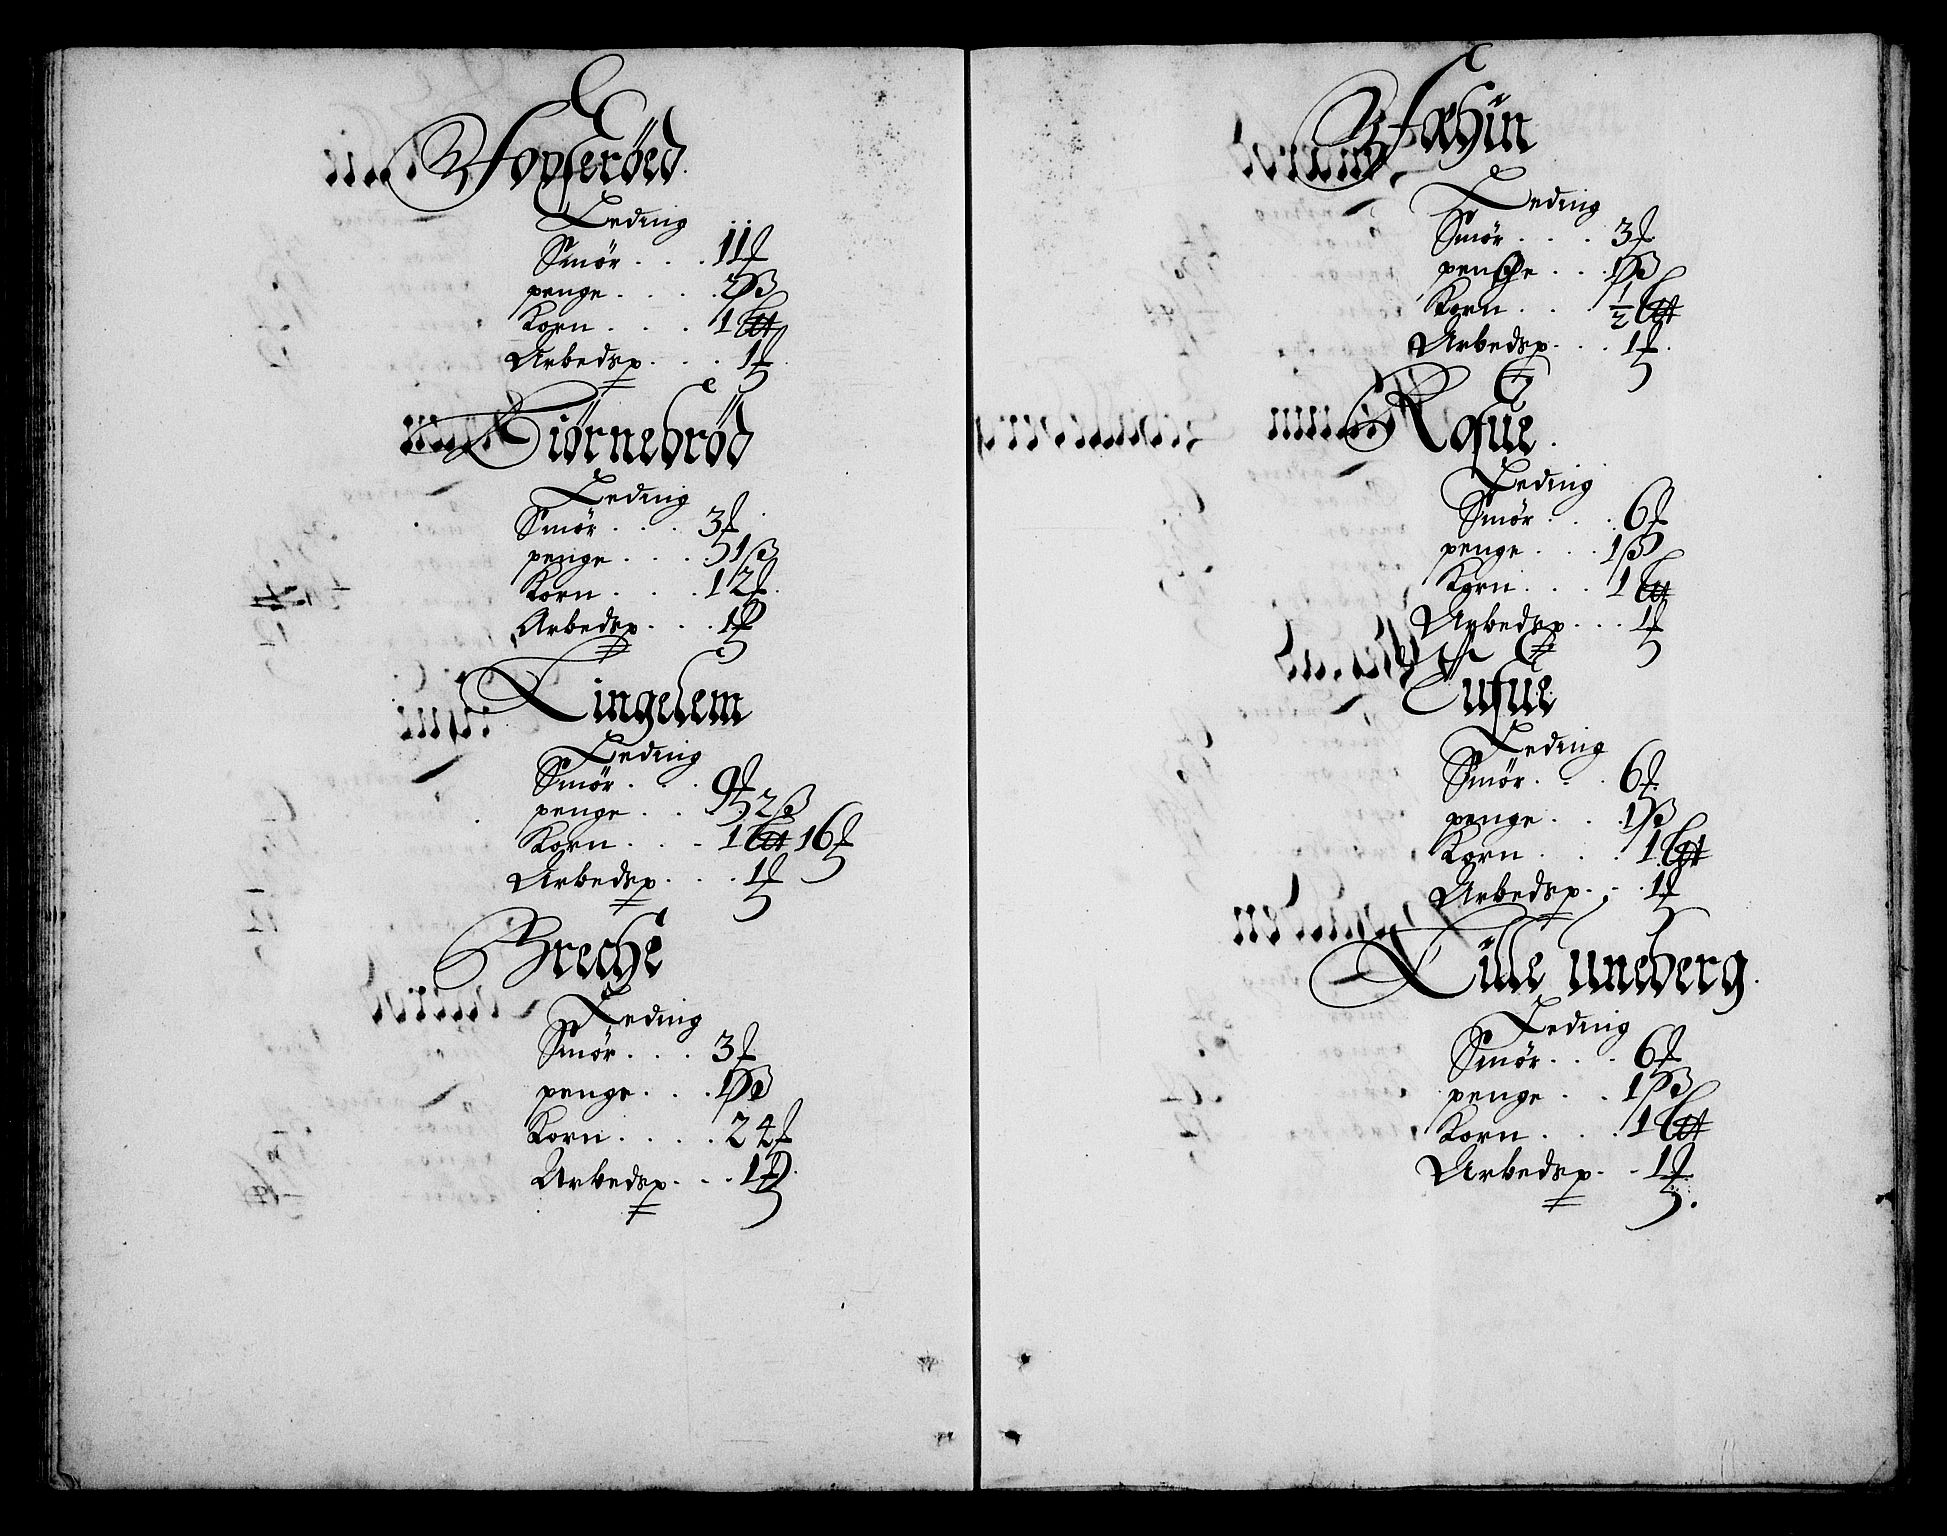 Hopperöed
Leding
Smör . . . 11 ℔
penge . . . 2 ß
Korn . . . 1 Ett
Arbedsp . . . 1 ℔
Biörnebröd
Leding
Smör . . . 3 ℔
penge . . . 1 ß
Korn . . . 12 ℔
Arbedsp . . . 1 ℔
Lingelem
Leding
Smör . . . 9 ℔
penge . . . 2 ß
Korn . . . 1 Ett 16 ℔
Arbedsp . . . 1 ℔
Breche
Leding
Smör . . . 3 ℔
penge . . . 1 ß
Korn . . . 24 ℔
Arbedsp . . . 1 ℔
Leding
Smör . . . 3 ℔
penge . . . 1 ß
Korn . . . ½ Ett
Arbedsp . . . 1 ℔
Rofue
Leding
Smör . . . 6 ℔
penge . . . 1 ß
Korn . . . 1 Ett
Arbedsp . . . 1 ℔
Tufue
Leding
Smör . . . 6 ℔
penge . . . 1 ß
Korn . . . 1 Ett
Arbedsp . . . 1 ℔
Lille uneberg
Leding
Smör . . . 6 ℔
penge . . . 1 ß
Korn . . . 1 Ett
Arbedsp . . . 1 ℔